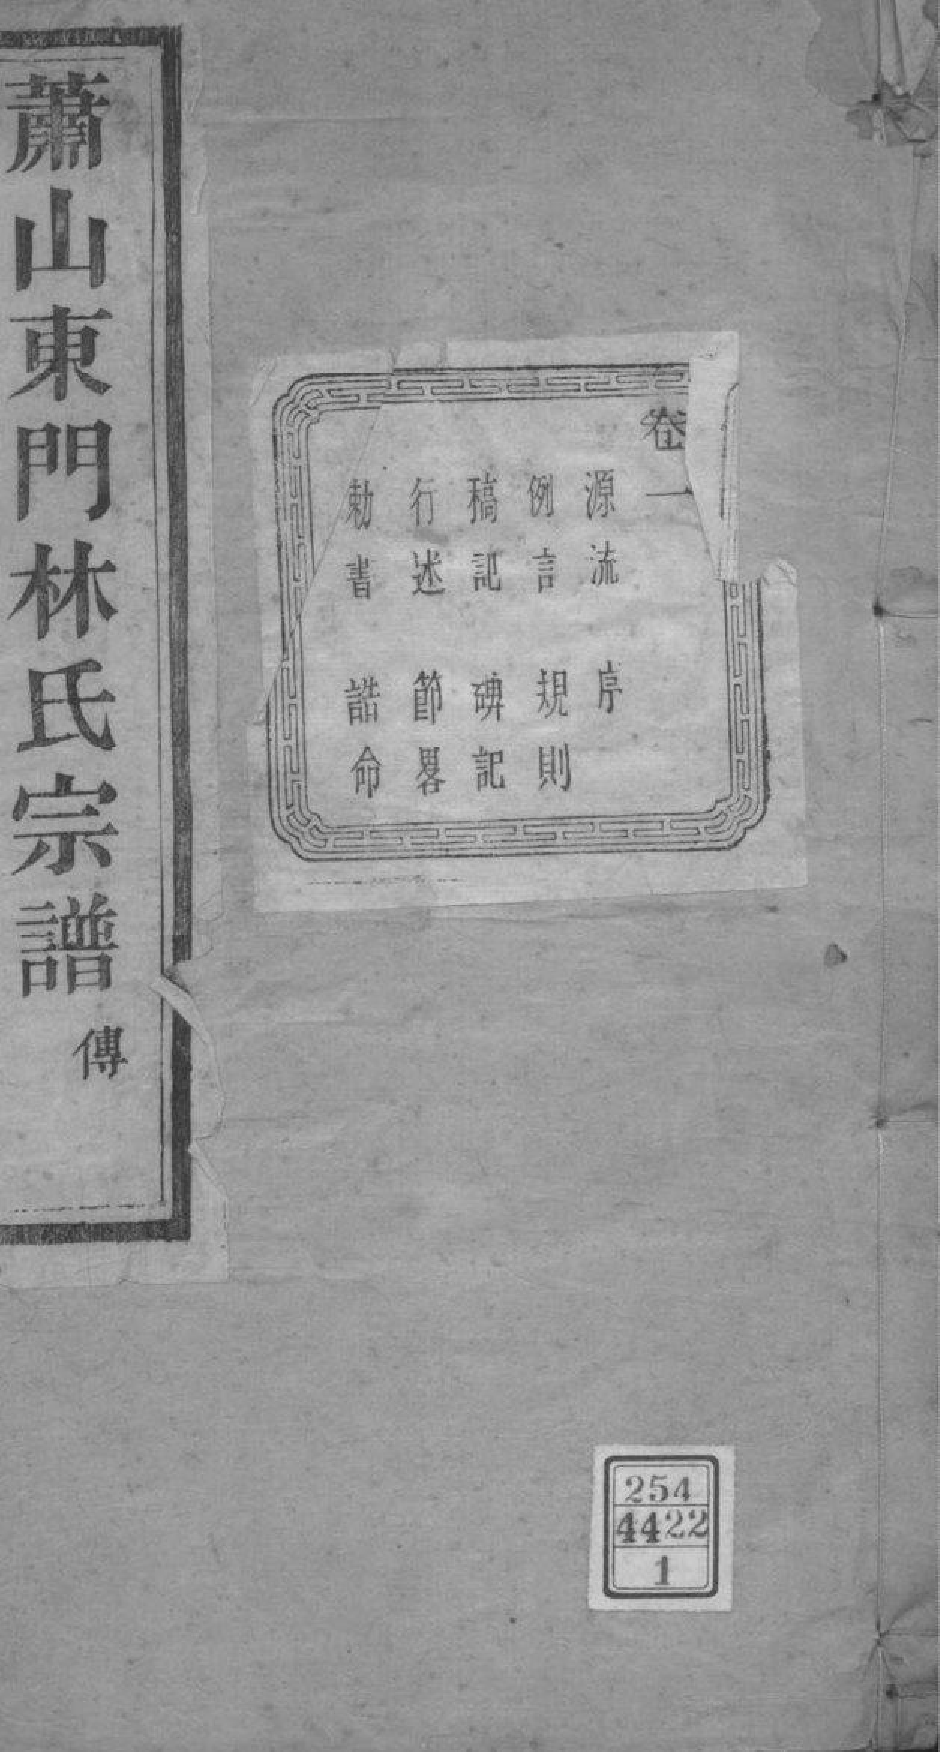 卷一
源流 序
例言 規則
稿記 碑記
行述 節畧
勅書 誥命
蕭山東門林氏宗譜 傳
254
4422
1